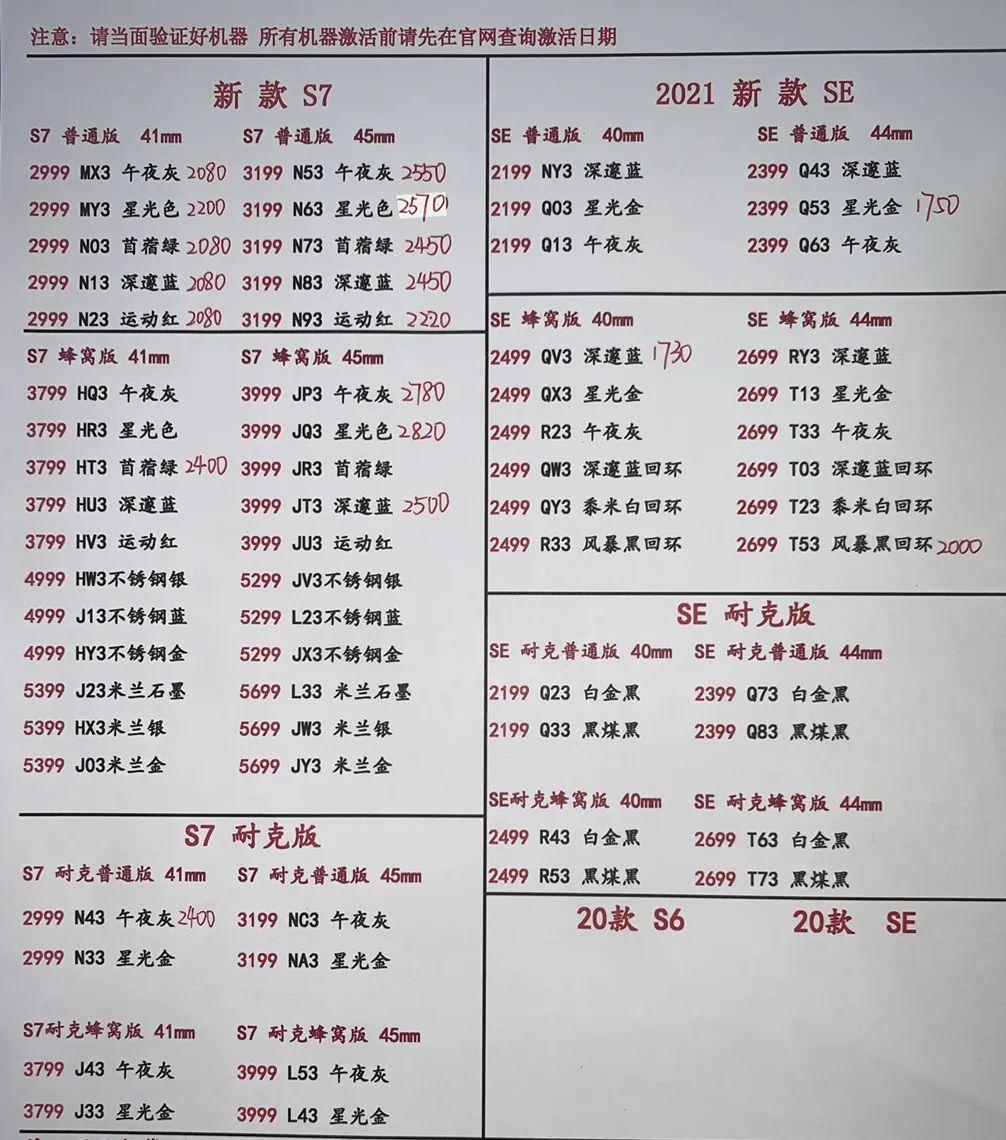 注意：请当面验证好机器 所有机器激活前请先在官网查询激活日期
新 款 S7
S7 普通版 41mm S7 普通版 45mm
2999 MX3 午夜灰 2080 3199 N53 午夜灰 2550
2999 MY3 星光色 2200 3199 N63 星光色 2570
2999 N03 首蓿绿 2080 3199 N73 首蓿绿 2450
2999 N13 深邃蓝 2080 3199 N83 深邃蓝 2450
2999 N23 运动红 2080 3199 N93 运动红 2220
S7 蜂窝版 41mm S7 蜂窝版 45mm
3799 HQ3 午夜灰 3999 JP3 午夜灰 2780
3799 HR3 星光色 3999 JQ3 星光色 2820
3799 HT3 首蓿绿 2400 3999 JR3 首蓿绿
3799 HU3 深邃蓝 3999 JT3 深邃蓝 2500
3799 HV3 运动红 3999 JU3 运动红
4999 HW3不锈钢银 5299 JV3不锈钢银
4999 J13不锈钢蓝 5299 L23不锈钢蓝
4999 HY3不锈钢金 5299 JX3不锈钢金
5399 J23米兰石墨 5699 L33 米兰石墨
5399 HX3米兰银 5699 JW3 米兰银
5399 J03米兰金 5699 JY3 米兰金
S7 耐克版
S7 耐克普通版 41mm S7 耐克普通版 45mm
2999 N43 午夜灰 2400 3199 NC3 午夜灰
2999 N33 星光金 3199 NA3 星光金
S7耐克蜂窝版 41mm S7 耐克蜂窝版 45mm
3799 J43 午夜灰 3999 L53 午夜灰
3799 J33 星光金 3999 L43 星光金
2021 新 款 SE
SE 普通版 40mm SE 普通版 44mm
2199 NY3 深邃蓝 2399 Q43 深邃蓝
2199 Q03 星光金 2399 Q53 星光金 1750
2199 Q13 午夜灰 2399 Q63 午夜灰
SE 蜂窝版 40mm SE 蜂窝版 44mm
2499 QV3 深邃蓝 1730 2699 RY3 深邃蓝
2499 QX3 星光金 2699 T13 星光金
2499 R23 午夜灰 2699 T33 午夜灰
2499 QW3 深邃蓝回环 2699 T03 深邃蓝回环
2499 QY3 黍米白回环 2699 T23 黍米白回环
2499 R33 风暴黑回环 2699 T53 风暴黑回环 2000
SE 耐克版
SE 耐克普通版 40mm SE 耐克普通版 44mm
2199 Q23 白金黑 2399 Q73 白金黑
2199 Q33 黑煤黑 2399 Q83 黑煤黑
SE耐克蜂窝版 40mm SE 耐克蜂窝版 44mm
2499 R43 白金黑 2699 T63 白金黑
2499 R53 黑煤黑 2699 T73 黑煤黑
20款 S6 20款 SE